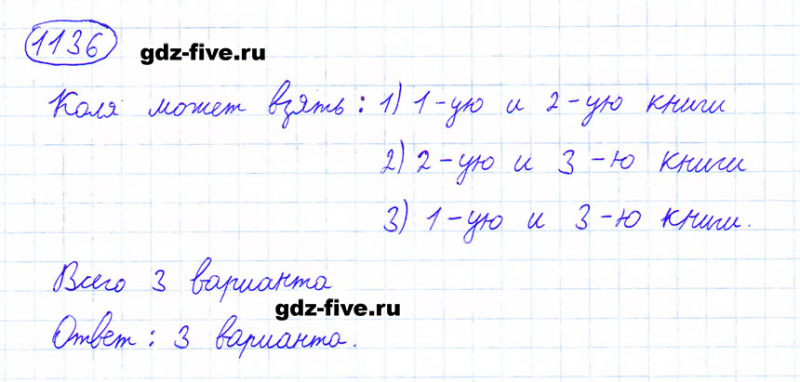 1136
gdz-five.ru
Коля может взять: 1) 1-ую и 2-ую книги
2) 2-ую и 3-ю книги
3) 1-ую и 3-ю книги.
Всего 3 варианта
gdz-five.ru
Ответ: 3 варианта.